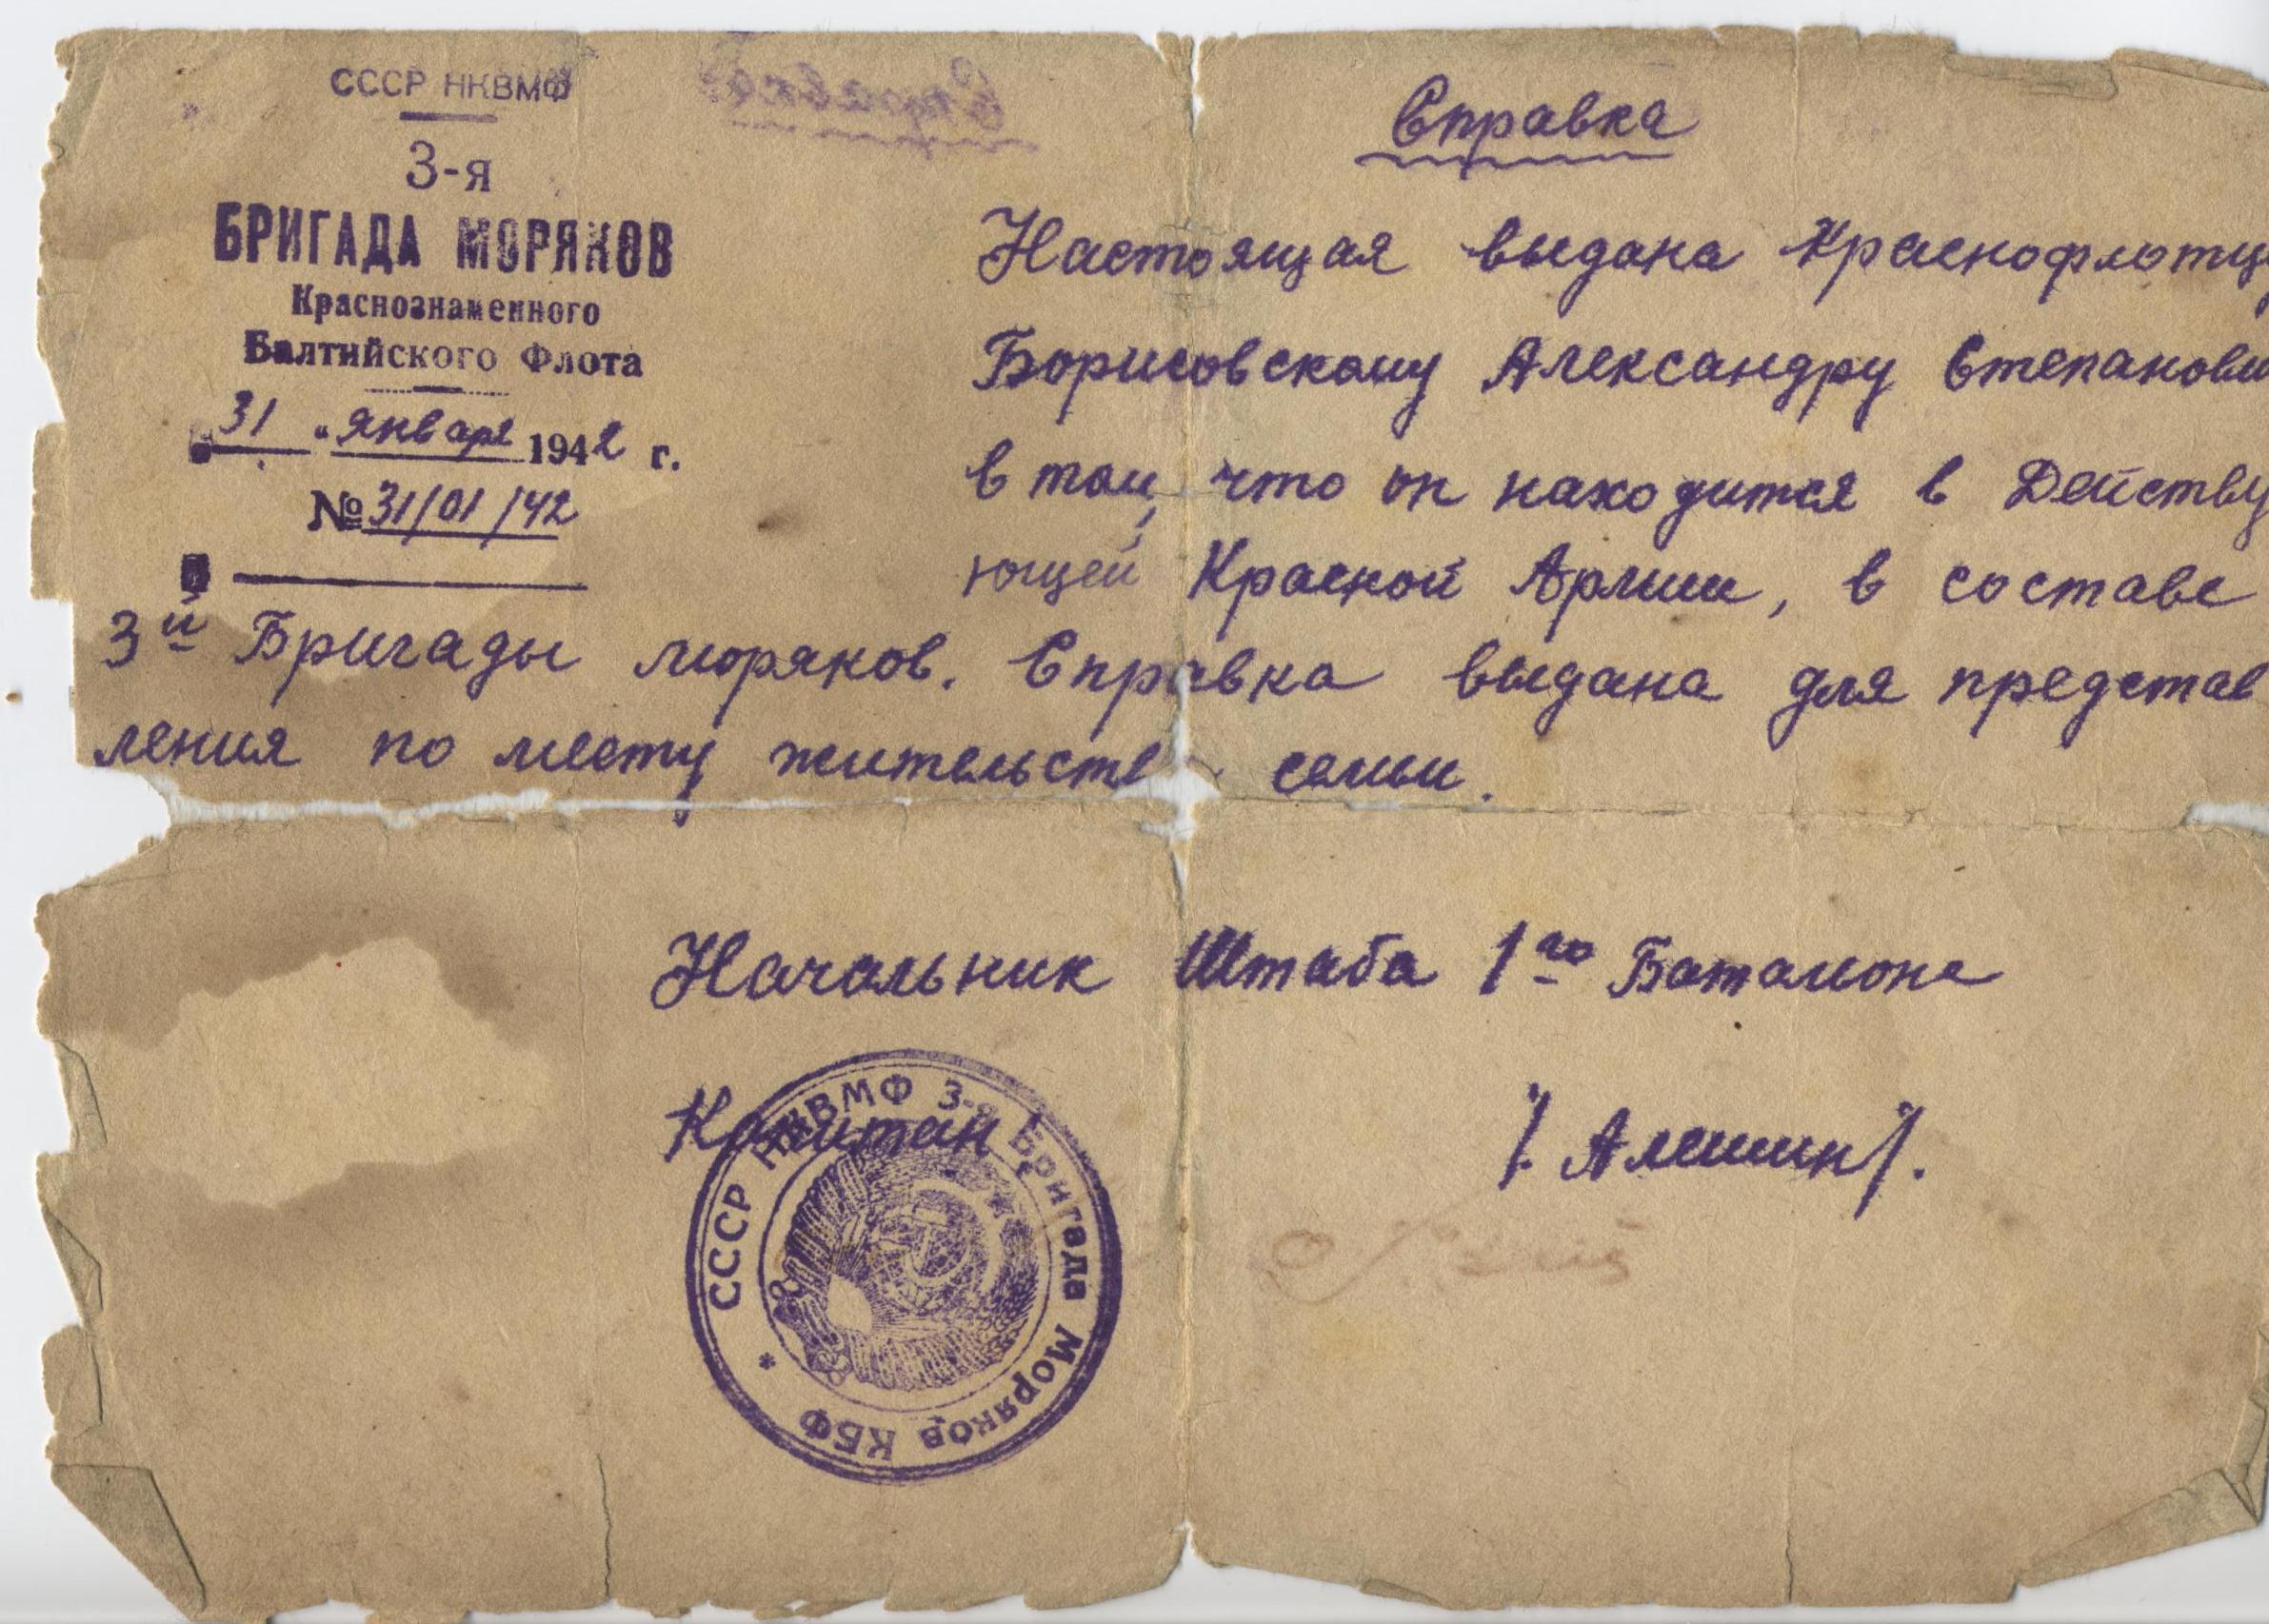 СССР НКВМФ
3-я
БРИГАДА МОРЯКОВ
Краснознаменного
Балтийского Флота
"31" января 1942 г.
№ 31/01/42
Справка
Настоящая выдана Краснофлотцу
Борисовскому Александру Степанови
в том, что он находится в Действу
ющей Красной Армии, в составе
3й Бригады моряков. Справка выдана для представ
ления по месту жительств семьи.
Начальник Штаба 1го Батальона
Капитан /. Алешин/.
СССР НКВМФ 3-я Бригада Моряков КБФ *